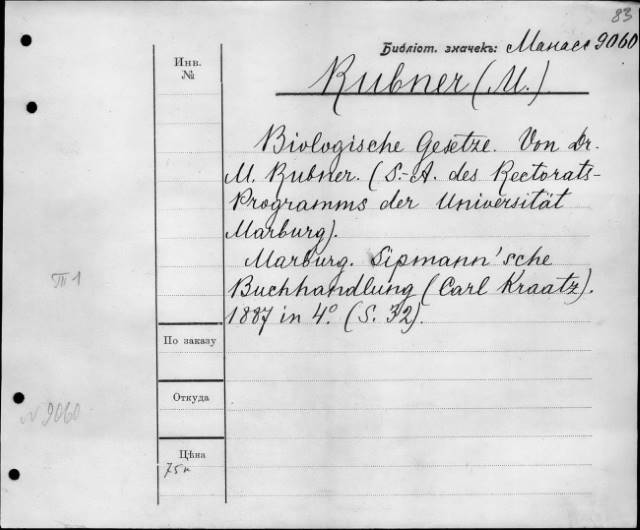 83
Библіот. значекъ: Манасс 9060
Инв.
№
Rubner (M.)
Biologische Gesetze. Von Dr.
M. Rubner. (S.-A. des Rectorats-
Programms der Universität
Marburg).
Marburg. Sipmann'sche
Buchhandlung (Carl Kraatz).
1887 in 4° (S. 32).
П 1
По заказу
Откуда
N 9060
Цѣна
75к